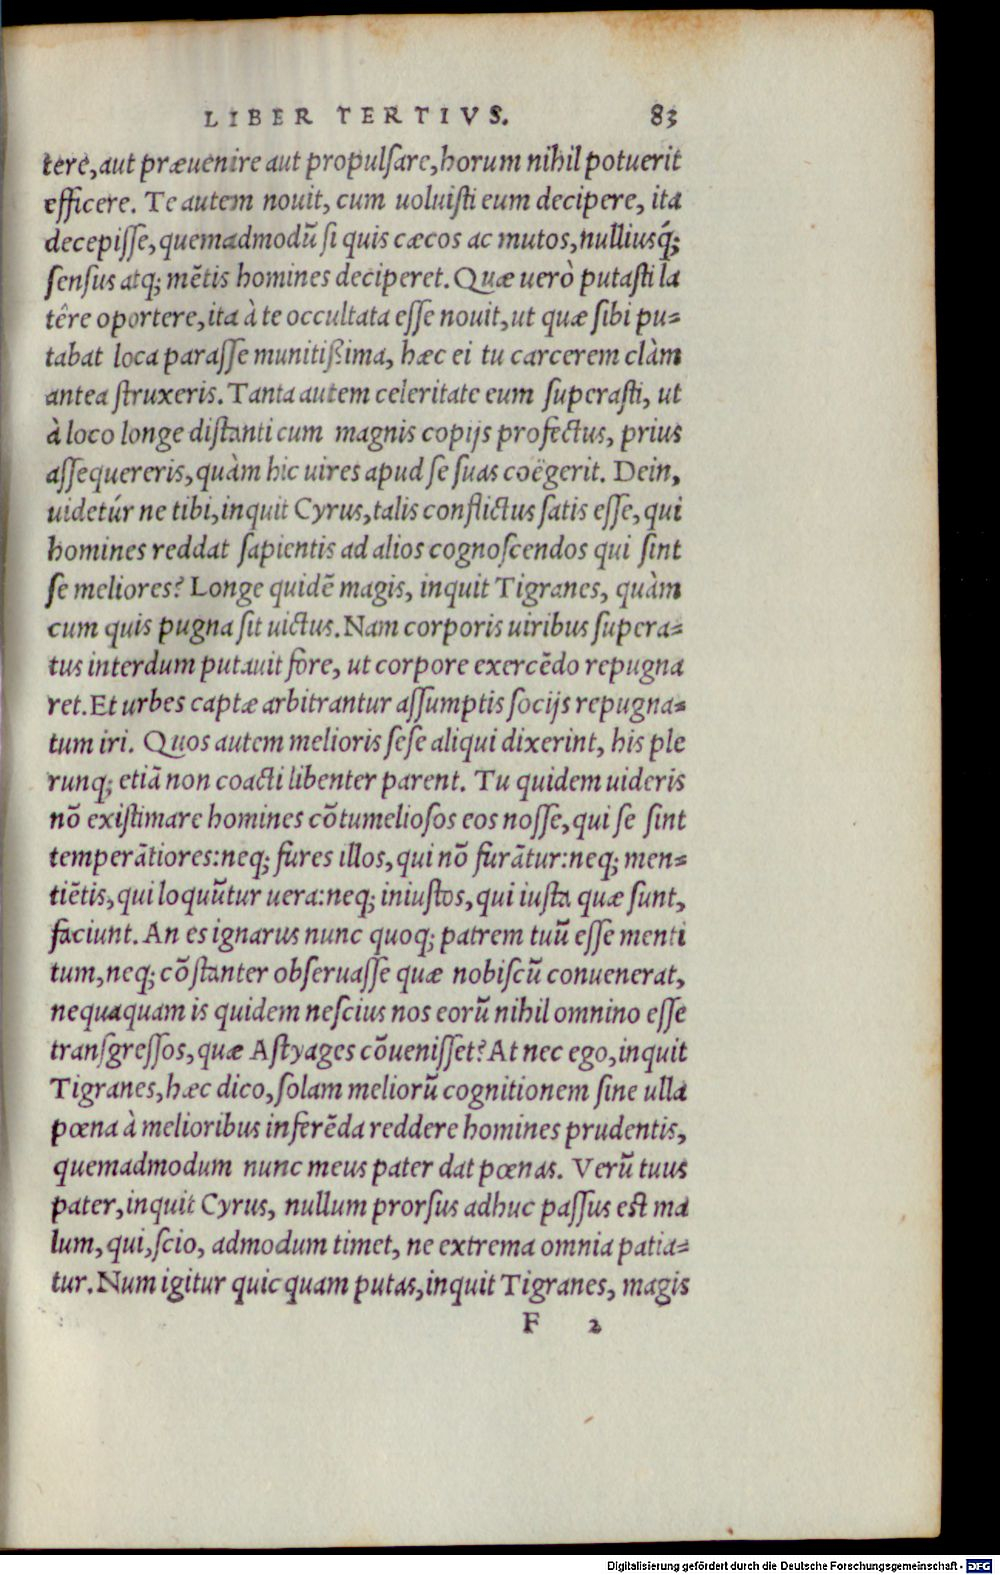 LIBER TERTIVS. 83
tere, aut præuenire aut propulſare, horum nihil potuerit
efficere. Te autem nouit, cum uoluiſti eum decipere, ita
decepiſſe, quemadmodū ſi quis cæcos ac mutos, nulliusq́;
ſenſus atq; mētis homines deciperet. Quæ uerò putaſti la
têre oportere, ita à te occultata eſſe nouit, ut quæ ſibi pu=
tabat loca paraſſe munitißima, hæc ei tu carcerem clàm
antea ſtruxeris. Tanta autem celeritate eum ſuperaſti, ut
à loco longe diſtanti cum magnis copijs profectus, prius
aſſequereris, quàm hic uires apud ſe ſuas coëgerit. Dein,
uidetúr ne tibi, inquit Cyrus, talis conflictus ſatis eſſe, qui
homines reddat ſapientis ad alios cognoſcendos qui ſint
ſe meliores? Longe quidē magis, inquit Tigranes, quàm
cum quis pugna ſit uictus. Nam corporis uiribus ſupera=
tus interdum putauit fore, ut corpore exercēdo repugna
ret. Et urbes captæ arbitrantur aſſumptis ſocijs repugna=
tum iri. Quos autem melioris ſeſe aliqui dixerint, his ple
runq; etiā non coacti libenter parent. Tu quidem uideris
nō exiſtimare homines cōtumelioſos eos noſſe, qui ſe ſint
temperātiores: neq; fures illos, qui nō furātur: neq; men=
tiētis, qui loquūtur uera: neq; iniuſtos, qui iuſta quæ ſunt,
faciunt. An es ignarus nunc quoq; patrem tuū eſſe menti
tum, neq; cōſtanter obſeruaſſe quæ nobiſcū conuenerat,
nequaquam is quidem neſcius nos eorū nihil omnino eſſe
tranſgreſſos, quæ Aſtyages cōueniſſet? At nec ego, inquit
Tigranes, hæc dico, ſolam meliorū cognitionem ſine ulla
pœna à melioribus inferēda reddere homines prudentis,
quemadmodum nunc meus pater dat pœnas. Verū tuus
pater, inquit Cyrus, nullum prorſus adhuc paſſus eſt ma
lum, qui, ſcio, admodum timet, ne extrema omnia patia=
tur. Num igitur quicquam putas, inquit Tigranes, magis
F 2
Digitalisierung gefördert durch die Deutsche Forschungsgemeinschaft - DFG